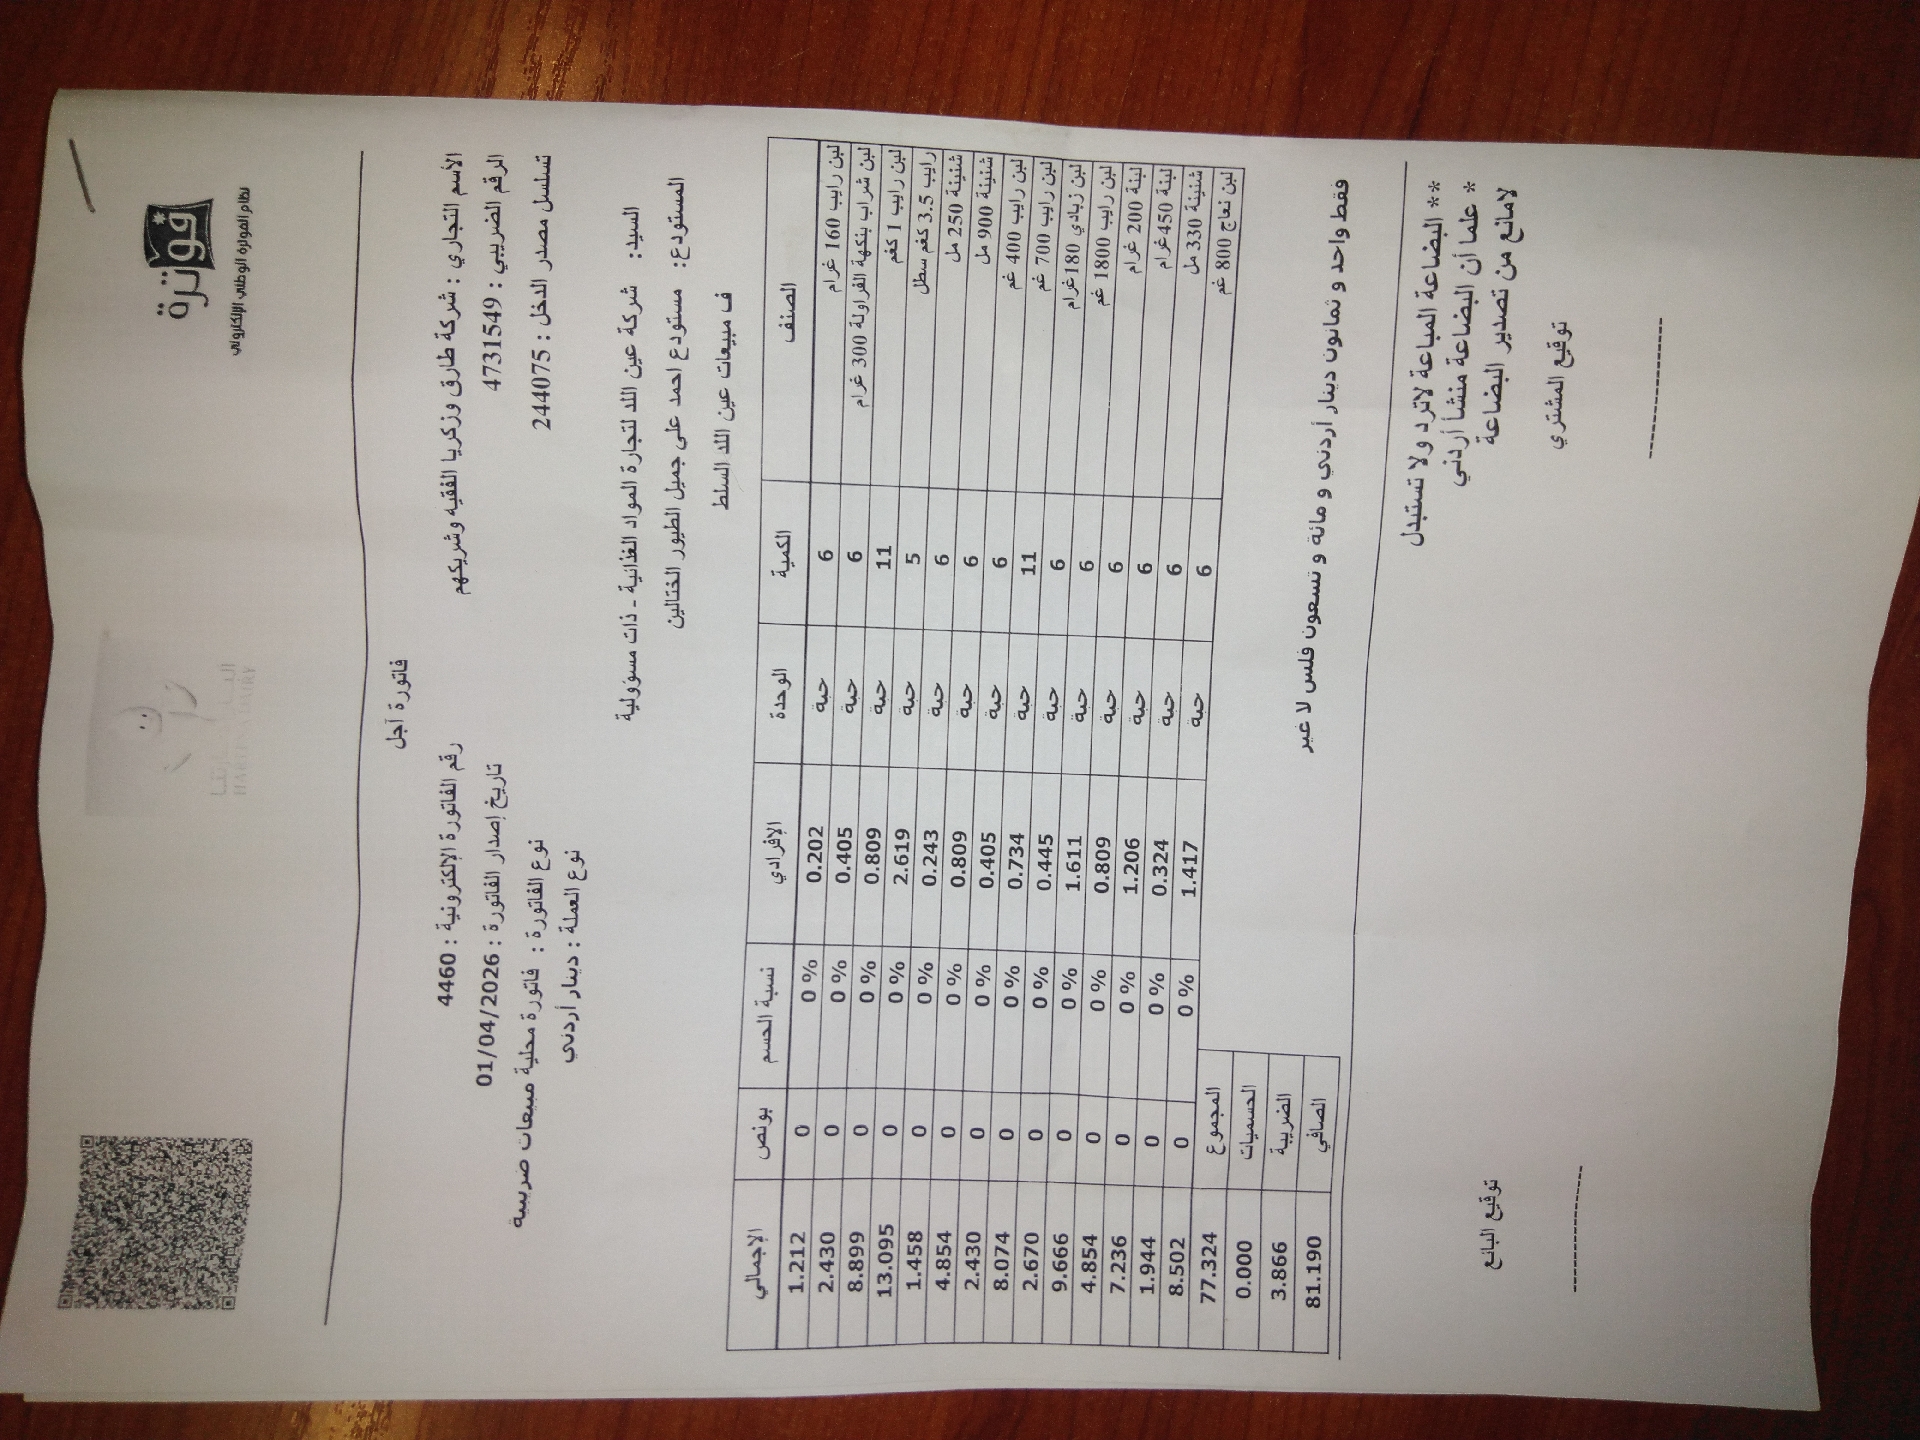 فوترة
نظام الفوترة الوطني الإلكتروني
HALIB DAIRY
فاتورة آجل
الأسم التجاري : شركة طارق وزكريا الفقيه وشريكهم
رقم الفاتورة الإلكترونية : 4460
الرقم الضريبي : 4731549
تاريخ إصدار الفاتورة : 01/04/2026
تسلسل مصدر الدخل : 244075
نوع الفاتورة : فاتورة محلية مبيعات ضريبية
نوع العملة : دينار أردني
السيد: شركة عين اللد لتجارة المواد الغذائية - ذات مسؤولية
المستودع: مستودع احمد علي جميل الطيور الختالين
ف مبيعات عين اللد السلط
الصنف الكمية الوحدة الإفرادي نسبة الحسم بونص الإجمالي
لبن رايب 160 غرام 6 حبة 0.202 0 % 0 1.212
لبن شراب بنكهة الفراولة 300 غرام 6 حبة 0.405 0 % 0 2.430
لبن رايب 1 كغم 11 حبة 0.809 0 % 0 8.899
رايب 3.5 كغم سطل 5 حبة 2.619 0 % 0 13.095
شنينة 250 مل 6 حبة 0.243 0 % 0 1.458
شنينة 900 مل 6 حبة 0.809 0 % 0 4.854
لبن رايب 400 غم 6 حبة 0.405 0 % 0 2.430
لبن رايب 700 غم 11 حبة 0.734 0 % 0 8.074
لبن زبادي 180غرام 6 حبة 0.445 0 % 0 2.670
لبن رايب 1800 غم 6 حبة 1.611 0 % 0 9.666
لبنة 200 غرام 6 حبة 0.809 0 % 0 4.854
لبنة 450غرام 6 حبة 1.206 0 % 0 7.236
شنينة 330 مل 6 حبة 0.324 0 % 0 1.944
لبن نعاج 800 غم 6 حبة 1.417 0 % 0 8.502
المجموع 77.324
الحسميات 0.000
الضريبة 3.866
الصافي 81.190
فقط واحد و ثمانون دينار أردني و مائة و تسعون فلس لا غير
** البضاعة المباعة لاترد ولا تستبدل
* علما أن البضاعة منشأ أردني
لامانع من تصدير البضاعة
توقيع المشتري
توقيع البائع